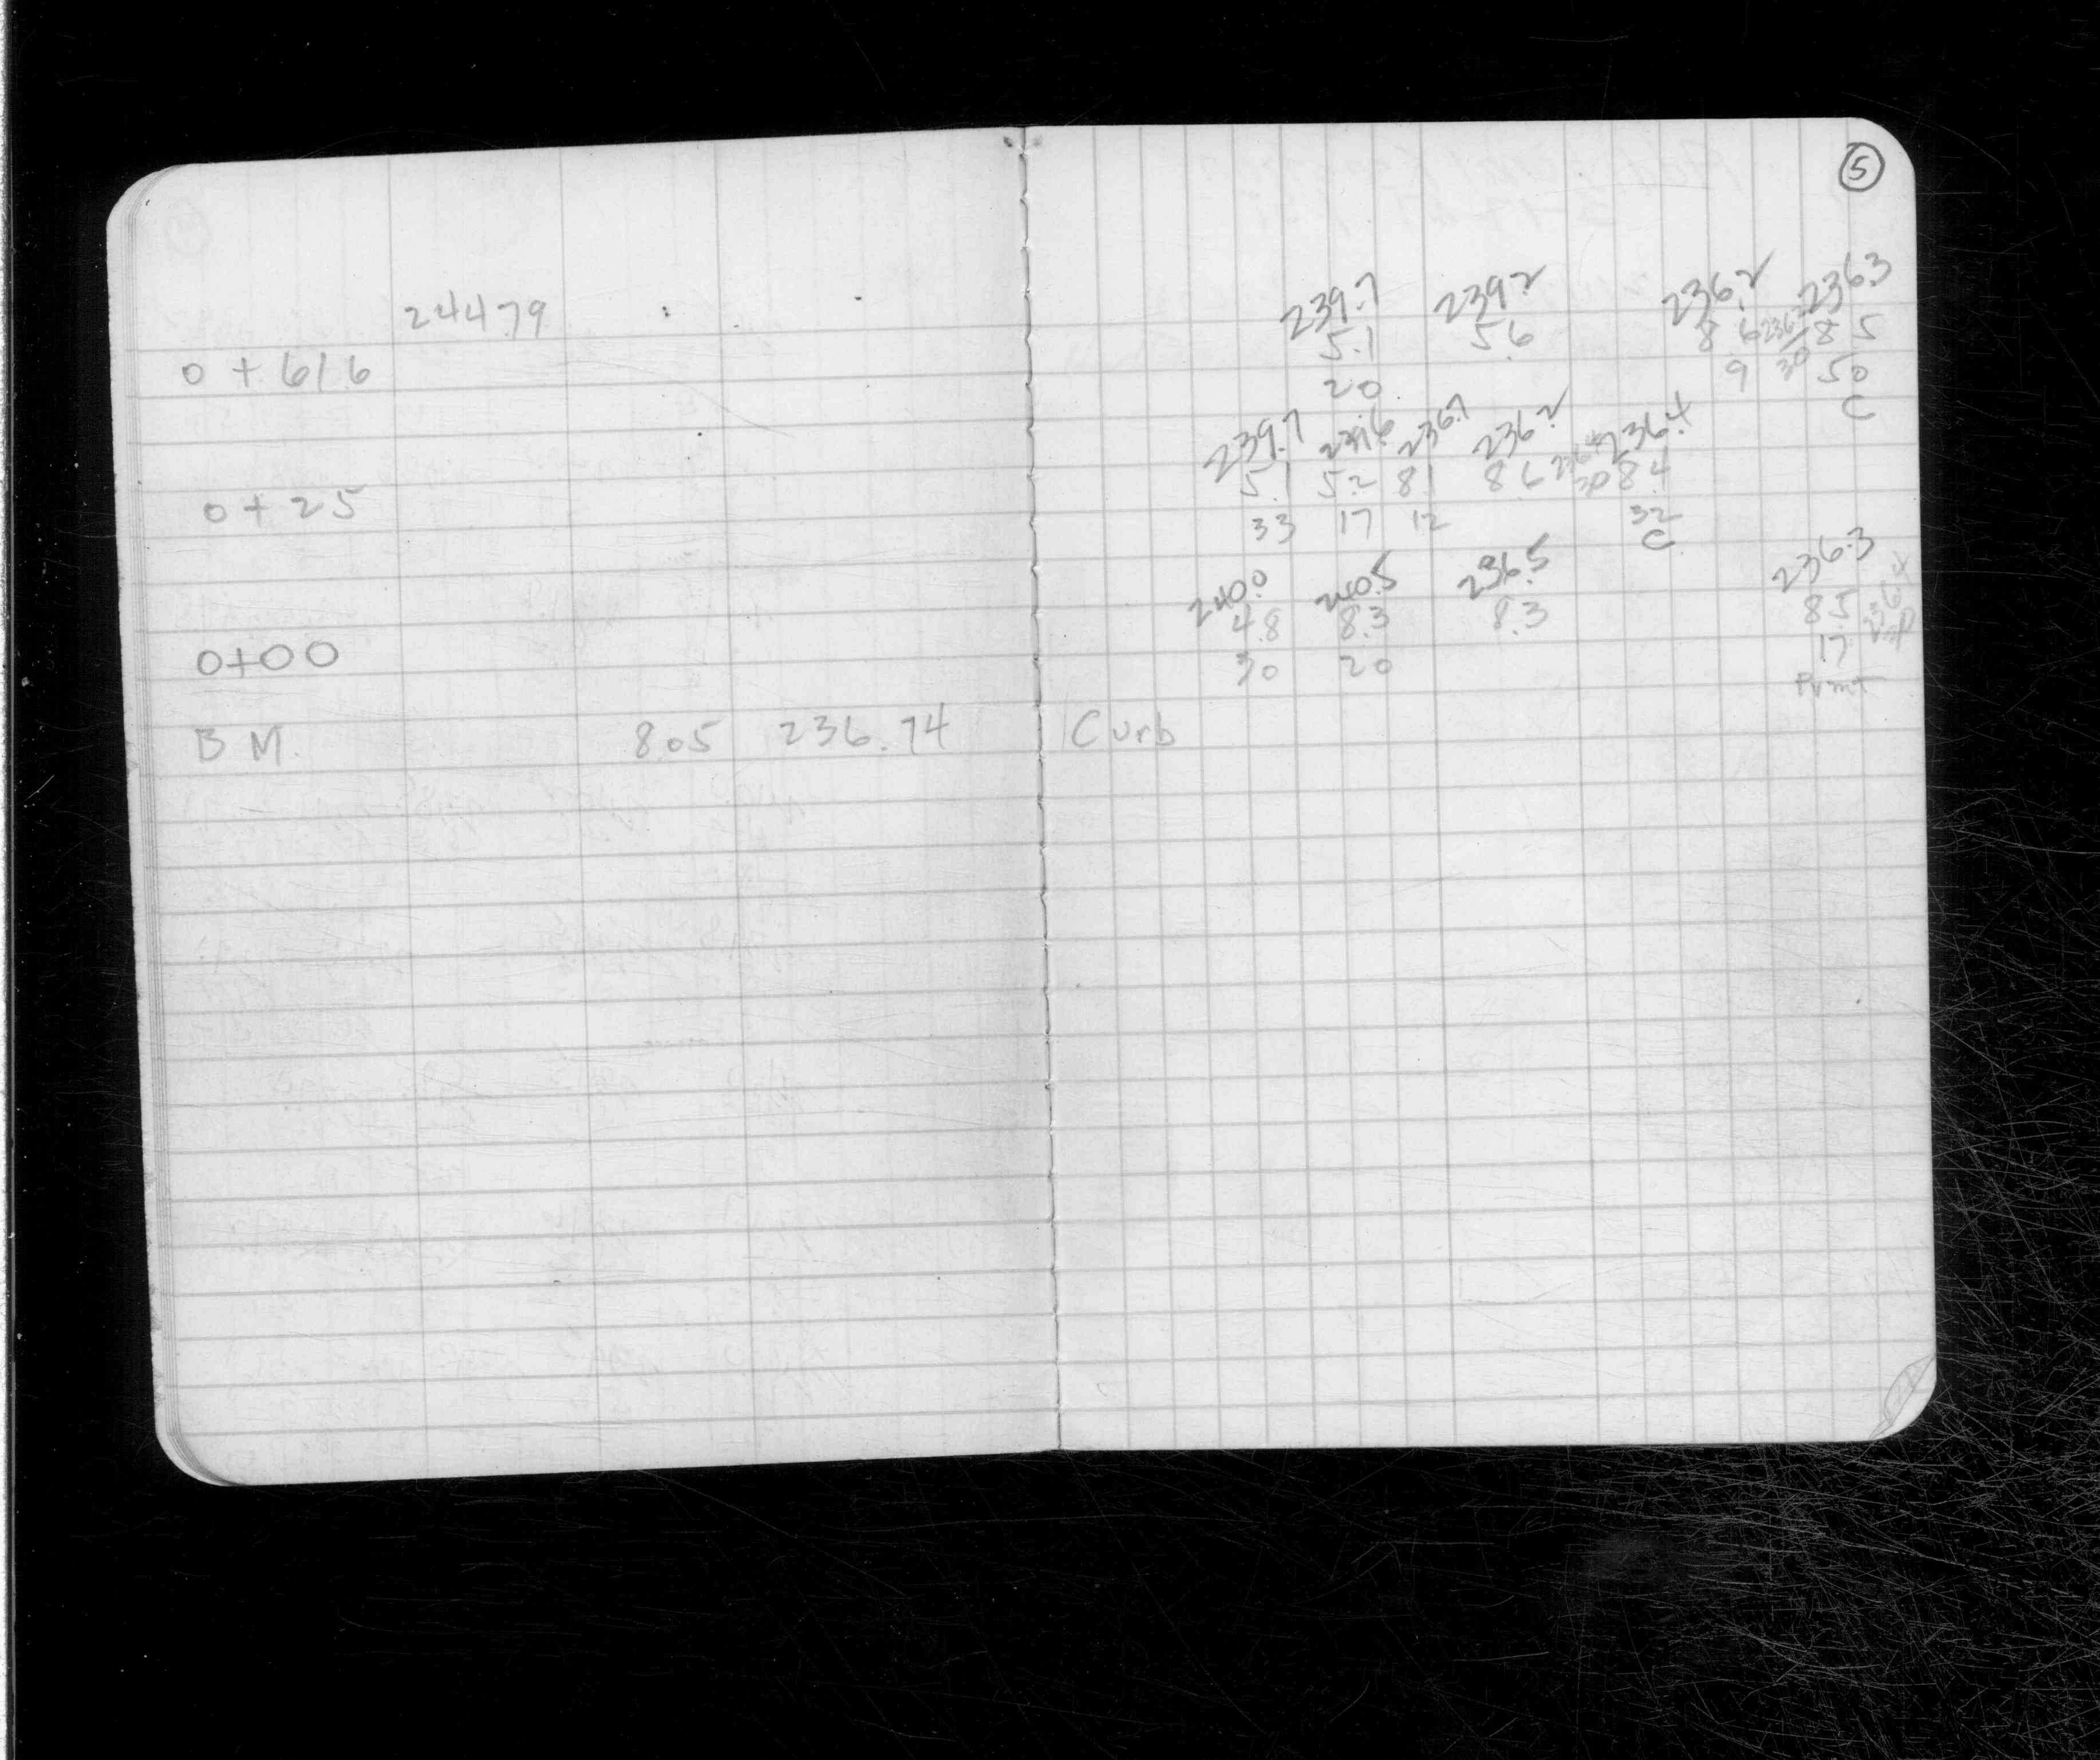 5
24479 239.7 239.2 236.2 236.3
5.1 5.6 8 6 236.2 8 5
0 + 616 20 9 30 50
C
239.7 239.6 236.7 236.2 236.4
5.1 5.2 8.1 8 6 30 8.4
0 + 25 33 17 12 32
C
240.0 240.5 236.5 236.3
4.8 8.3 8.3 8.5 236.4
0+00 30 20 17
Pvmt
B M. 8.05 236.74 Curb